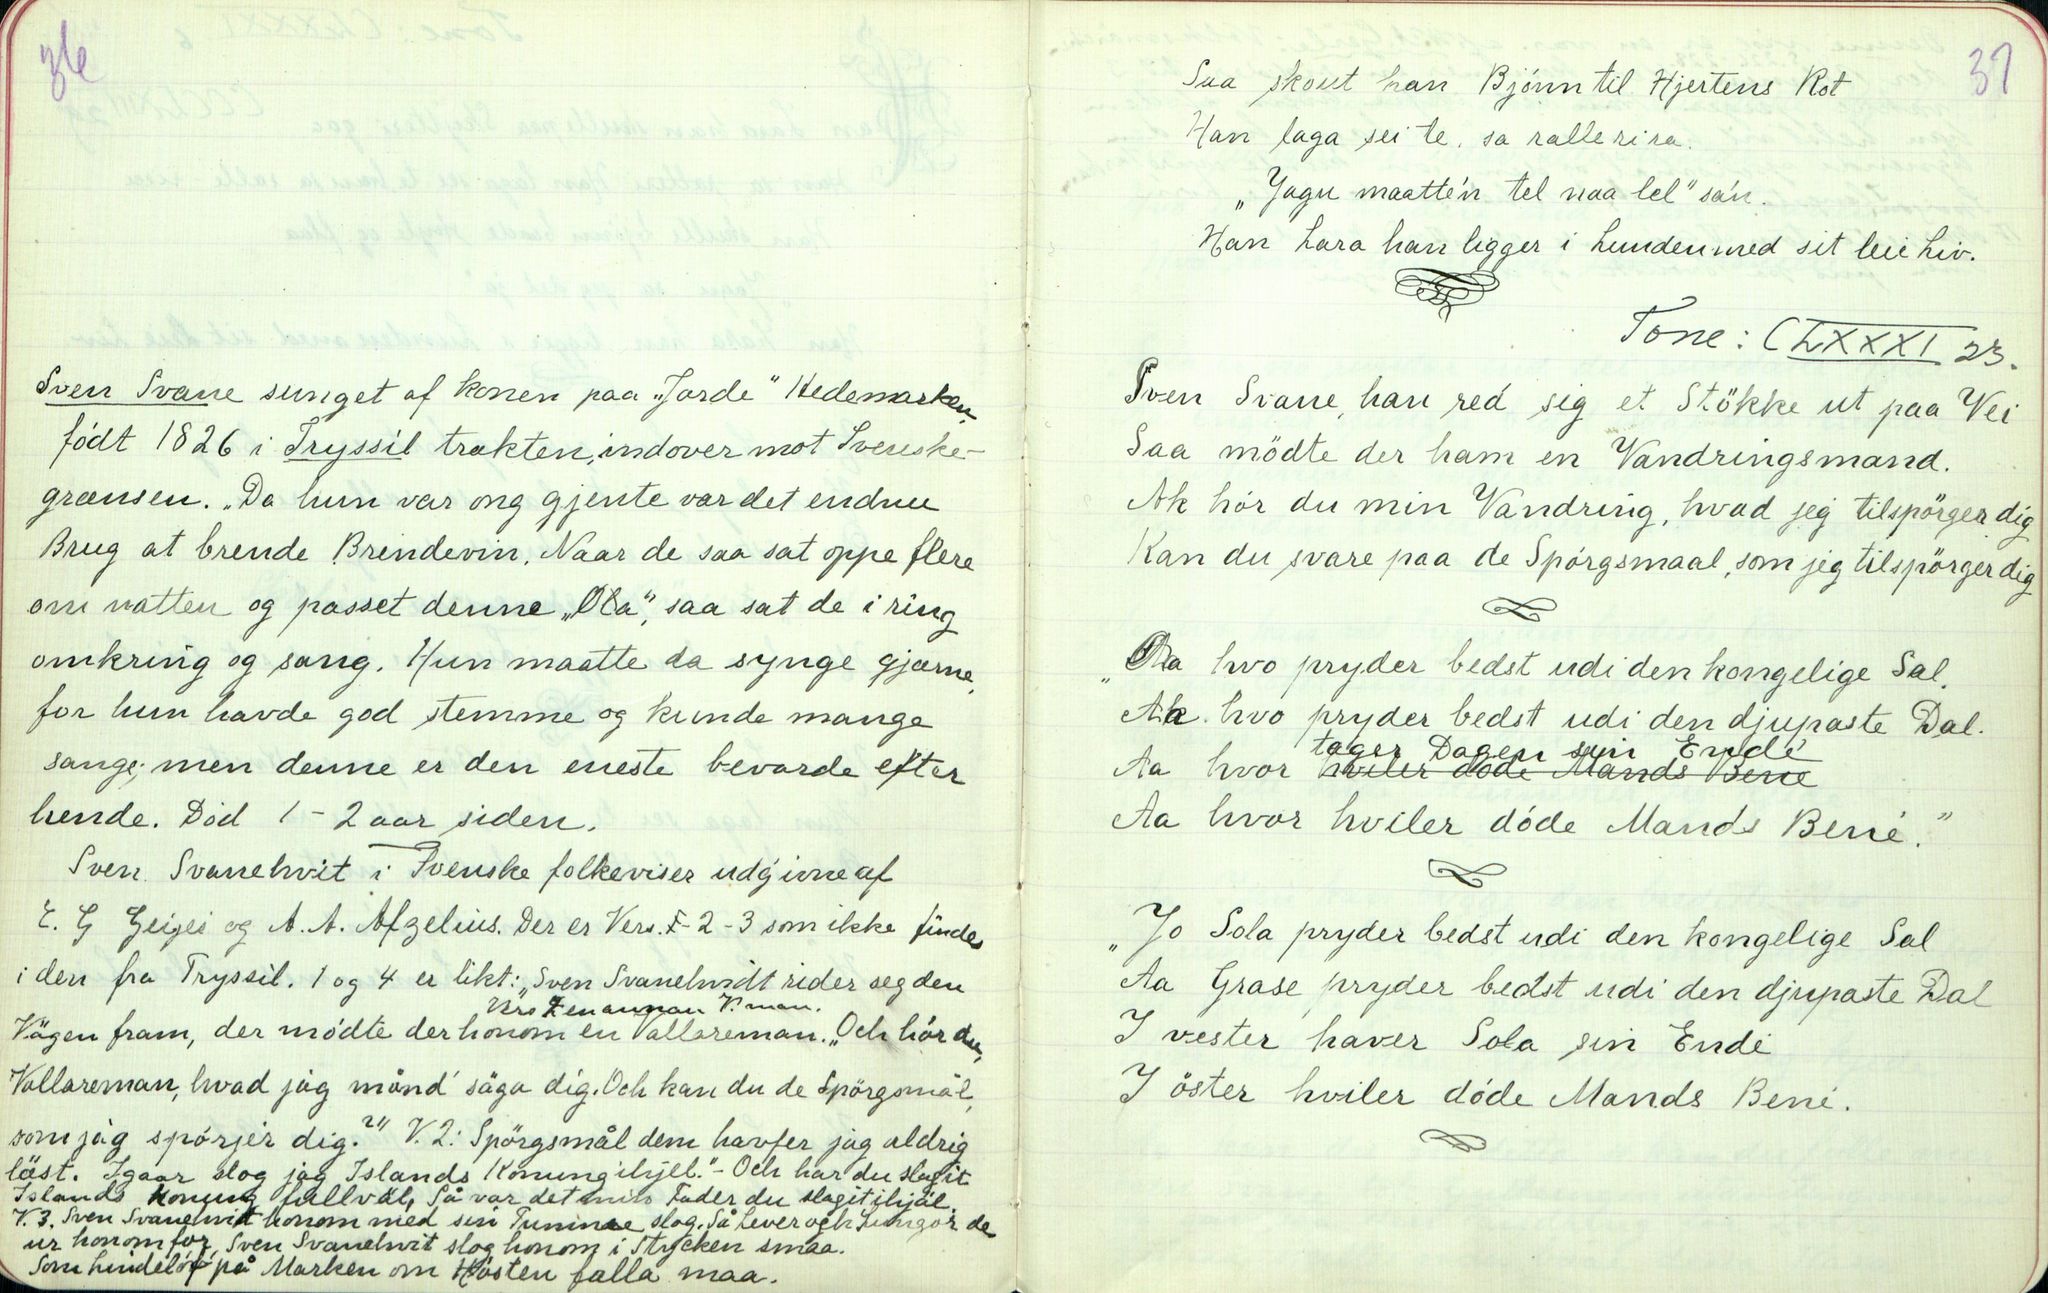 36
Sven Svane sunget af konen paa „Jorde" Hedemarken,
födt 1826 i Tryssil trakten, indover mot Svenske-
grænsen. „Da hun var ong gjente var det endnu
Brug at brende Brindevin. Naar de saa sat oppe flere
om natten og passet denne „Ola", saa sat de i ring
omkring og sang. Hun maatte da synge gjærne,
for hun havde god stemme og kunde mange
sange; men denne er den eneste bevarde efter
hende. Död 1-2 aar siden.
Sven Svanehvit i Svenske folkeviser udgivne af
E. G Geijei og A. A. Afzelius. Der er Vers. 2-3 som ikke findes
i den fra Tryssil. 1 og 4 er likt: „Sven Svanehvidt rider seg den
Vers V. man.
Vägen fram, der mödte der honom en Vallareman. „Och hör du,
Vallareman, hvad jäg månd' säga dig. Och kan du de Spörgsmål,
som jäg spörjer dig?" V. 2: Spörgsmål dem havfer jag aldrig
läst. Igaar slog jag Islands Konung ihjel." - Och har du slagit
Islands Konung fallväl, Så var det min Fader du slagit ihjäl.
V. 3. Sven Svanehvit honom med sin slog. Så Lever och Lungor de
ur honom for, Sven Svanehvit slog honom i Stycken smaa.
Som Lindelöf på Marken om Hösten falla maa.
37
Saa skout han Bjönn til Hjertens Rot
Han laga sei te, sa rallerira.
„Jagu maatte'n tel naa lel" sa'n.
Han Lara han ligger i Lunden med sit leie Liv.
Tone: CLXXXI 23.
Sven Svane, han red sig et Stökke ut paa Vei
Saa mödte der ham en Vandringsmand.
Ak hör du min Vandring, hvad jeg tilspörger dig
Kan du svare paa de Spörgsmaal, som jeg tilspörger dig
„Aa hvo pryder bedst udi den kongelige Sal.
Aa hvo pryder bedst udi den djupaste Dal.
tager Dagen sin Ende
Aa hvor hviler döde Mands Bene
Aa hvor hviler döde Mands Bene."
„Jo Sola pryder bedst udi den kongelige Sal
Aa Grase pryder bedst udi den djupaste Dal
I vester haver Sola sin Ende
I öster hviler döde Mands Bene.